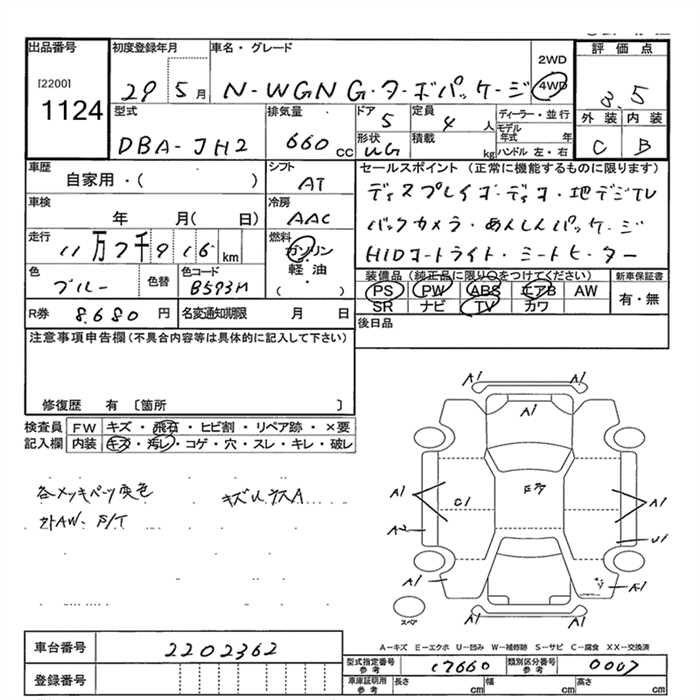 出品番号 初度登録年月 車名・グレード 評価点
[2200] 29 5月 N-WGN G・ターボパッケージ 2WD 4WD 3.5
1124 外装 内装
型式 排気量 ドア 定員 ディーラー・並行
DBA-JH2 660cc 5 4人 モデル年式 年 C B
形状 積載 ハンドル 左・右
WG kg
車歴 シフト セールスポイント (正常に機能するものに限ります)
自家用・( ) AT ディスプレイオーディオ・地デジTV
車検 冷房
年 月( 日) AAC バックカメラ・あんしんパッケージ
走行 燃料
11万7千916km ガソリン・軽油・( ) HIDコートライト・シートヒーター
色 色替 色コード 装備品 (純正品に限り○をつけてください) 新車保証書
ブルー B593M PS PW ABS エアB AW 有・無
SR ナビ TV カワ
R券 8.680円 名変通知期限 月 日 後日品
注意事項申告欄(不具合内容等は具体的に記入して下さい)
修復歴 有 〔箇所 〕
検査員 FW キズ・飛石・ヒビ割・リペア跡・×要
記入欄 内装 キズ・汚レ・コゲ・穴・スレ・キレ・破レ
各メッキパーツ変色
外AW・F/T
A1 A1
A1
A1 C1 A1
A2 U1
A1
スペア
A-キズ E-エクボ U-凹み W-補修跡 S-サビ C-腐食 XX-交換済
車台番号 2202362
登録番号
型式指定番号 参考 17660 類別区分番号 参考 0007
車庫証明用 参考 長さ cm 幅 cm 高さ cm